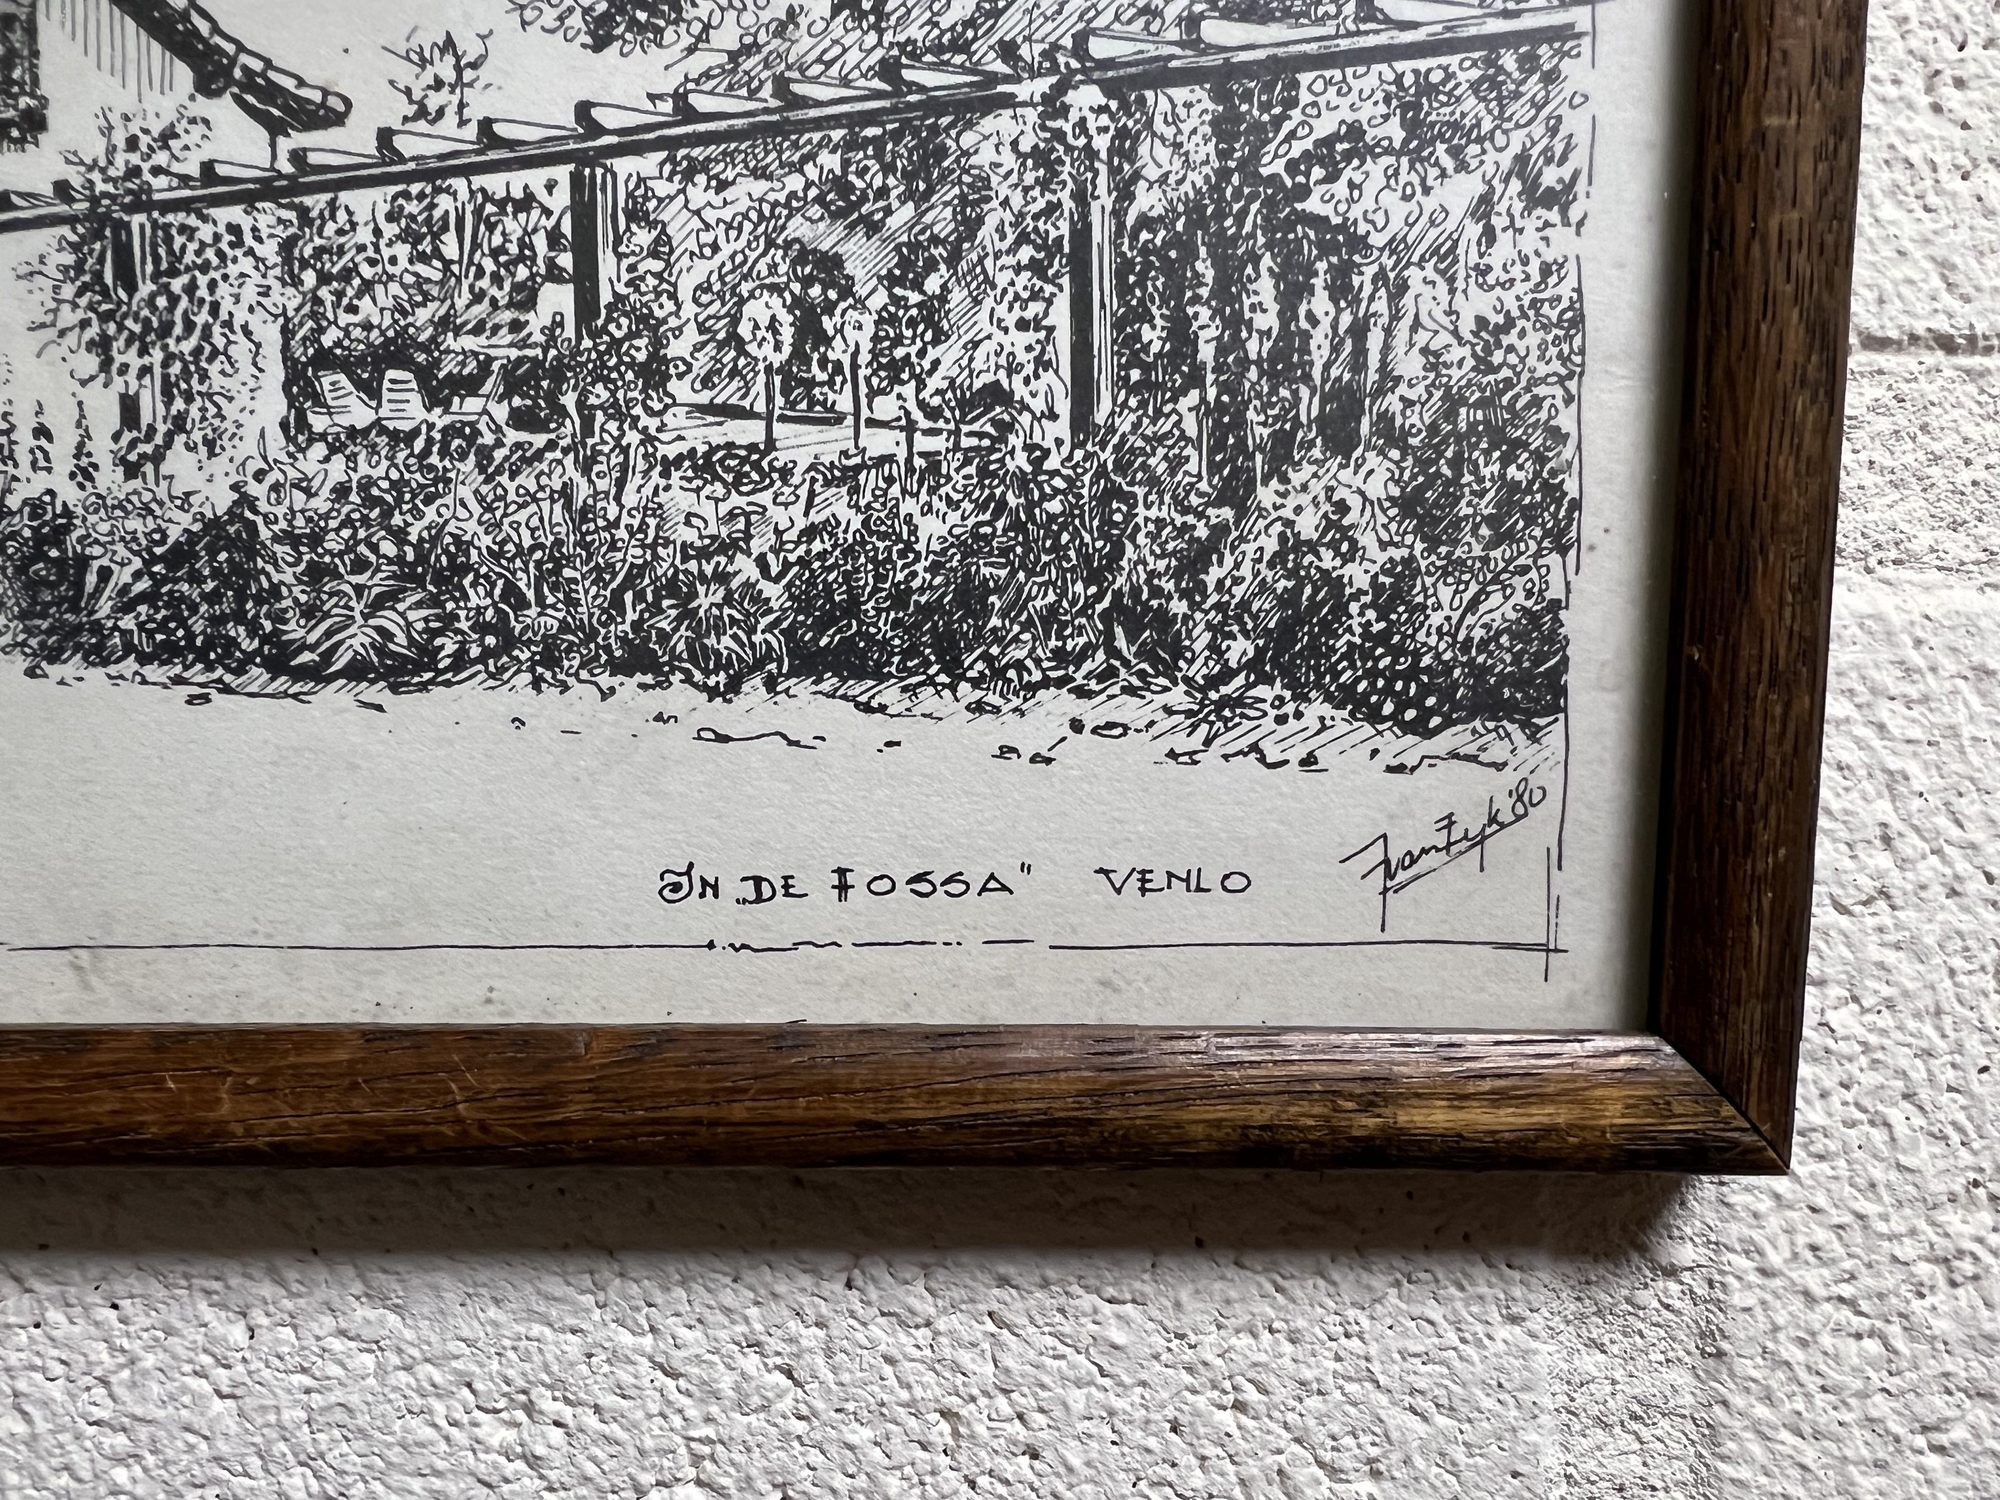 IN „DE FOSSA" VENLO
J van Eyk '80